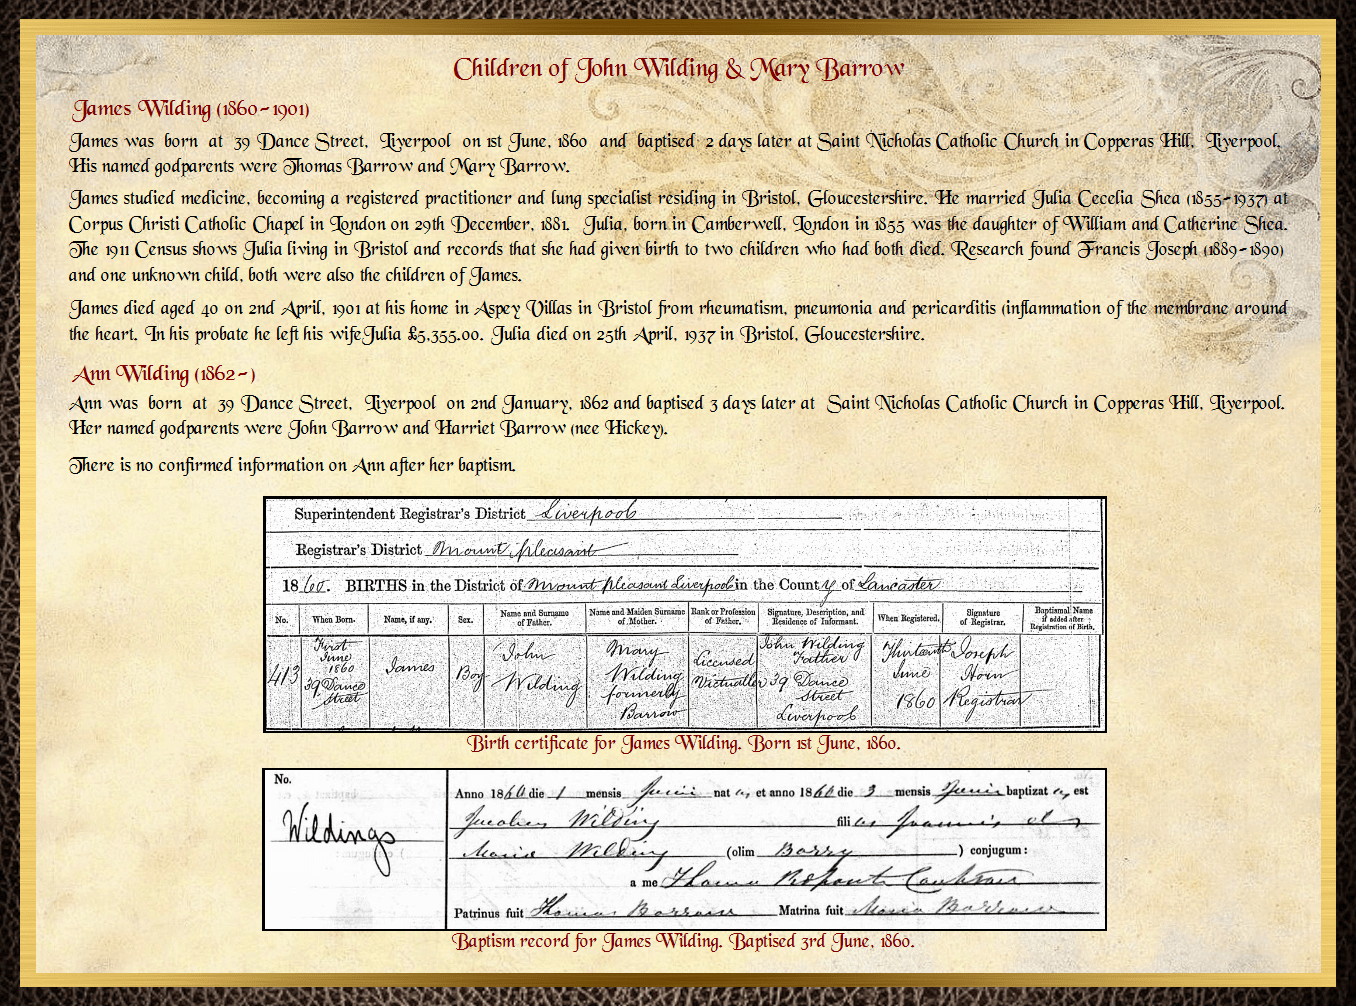 Children of John Wilding & Mary Barrow
James Wilding (1860-1901)
James was born at 39 Dance Street, Liverpool on 1st June, 1860 and baptised 2 days later at Saint Nicholas Catholic Church in Copperas Hill, Liverpool.
His named godparents were Thomas Barrow and Mary Barrow.
James studied medicine, becoming a registered practitioner and lung specialist residing in Bristol, Gloucestershire. He married Julia Cecelia Shea (1855-1937) at
Corpus Christi Catholic Chapel in London on 29th December, 1881. Julia, born in Camberwell, London in 1855 was the daughter of William and Catherine Shea.
The 1911 Census shows Julia living in Bristol and records that she had given birth to two children who had both died. Research found Francis Joseph (1889-1890)
and one unknown child, both were also the children of James.
James died aged 40 on 2nd April, 1901 at his home in Aspey Villas in Bristol from rheumatism, pneumonia and pericarditis (inflammation of the membrane around
the heart. In his probate he left his wifeJulia £5,355.00. Julia died on 25th April, 1937 in Bristol, Gloucestershire.
Ann Wilding (1862-)
Ann was born at 39 Dance Street, Liverpool on 2nd January, 1862 and baptised 3 days later at Saint Nicholas Catholic Church in Copperas Hill, Liverpool.
Her named godparents were John Barrow and Harriet Barrow (nee Hickey).
There is no confirmed information on Ann after her baptism.
Superintendent Registrar's District Liverpool
Registrar's District Mount Pleasant
1860. BIRTHS in the District of Mount Pleasant Liverpool in the County of Lancaster
No. When Born. Name, if any. Sex. Name and Surname of Father. Name and Maiden Surname of Mother. Rank or Profession of Father. Signature, Description, and Residence of Informant. When Registered. Signature of Registrar. Baptismal Name if added after Registration of Birth.
413 First June 1860 39 Dance Street James Boy John Wilding Mary Wilding formerly Barrow Licensed Victualler John Wilding Father 39 Dance Street Liverpool Thirteenth June 1860 Joseph Horn Registrar
Birth certificate for James Wilding. Born 1st June, 1860.
No.
Wildings
Anno 1860 die 1 mensis Junii nat us et anno 1860 die 3 mensis Junii baptizat us est
Jacobus Wilding fili us Joannis et
Maria Wilding (olim Barry) conjugum:
a me Thoma
Patrinus fuit Thomas Barrow Matrina fuit Maria Barrow
Baptism record for James Wilding. Baptised 3rd June, 1860.